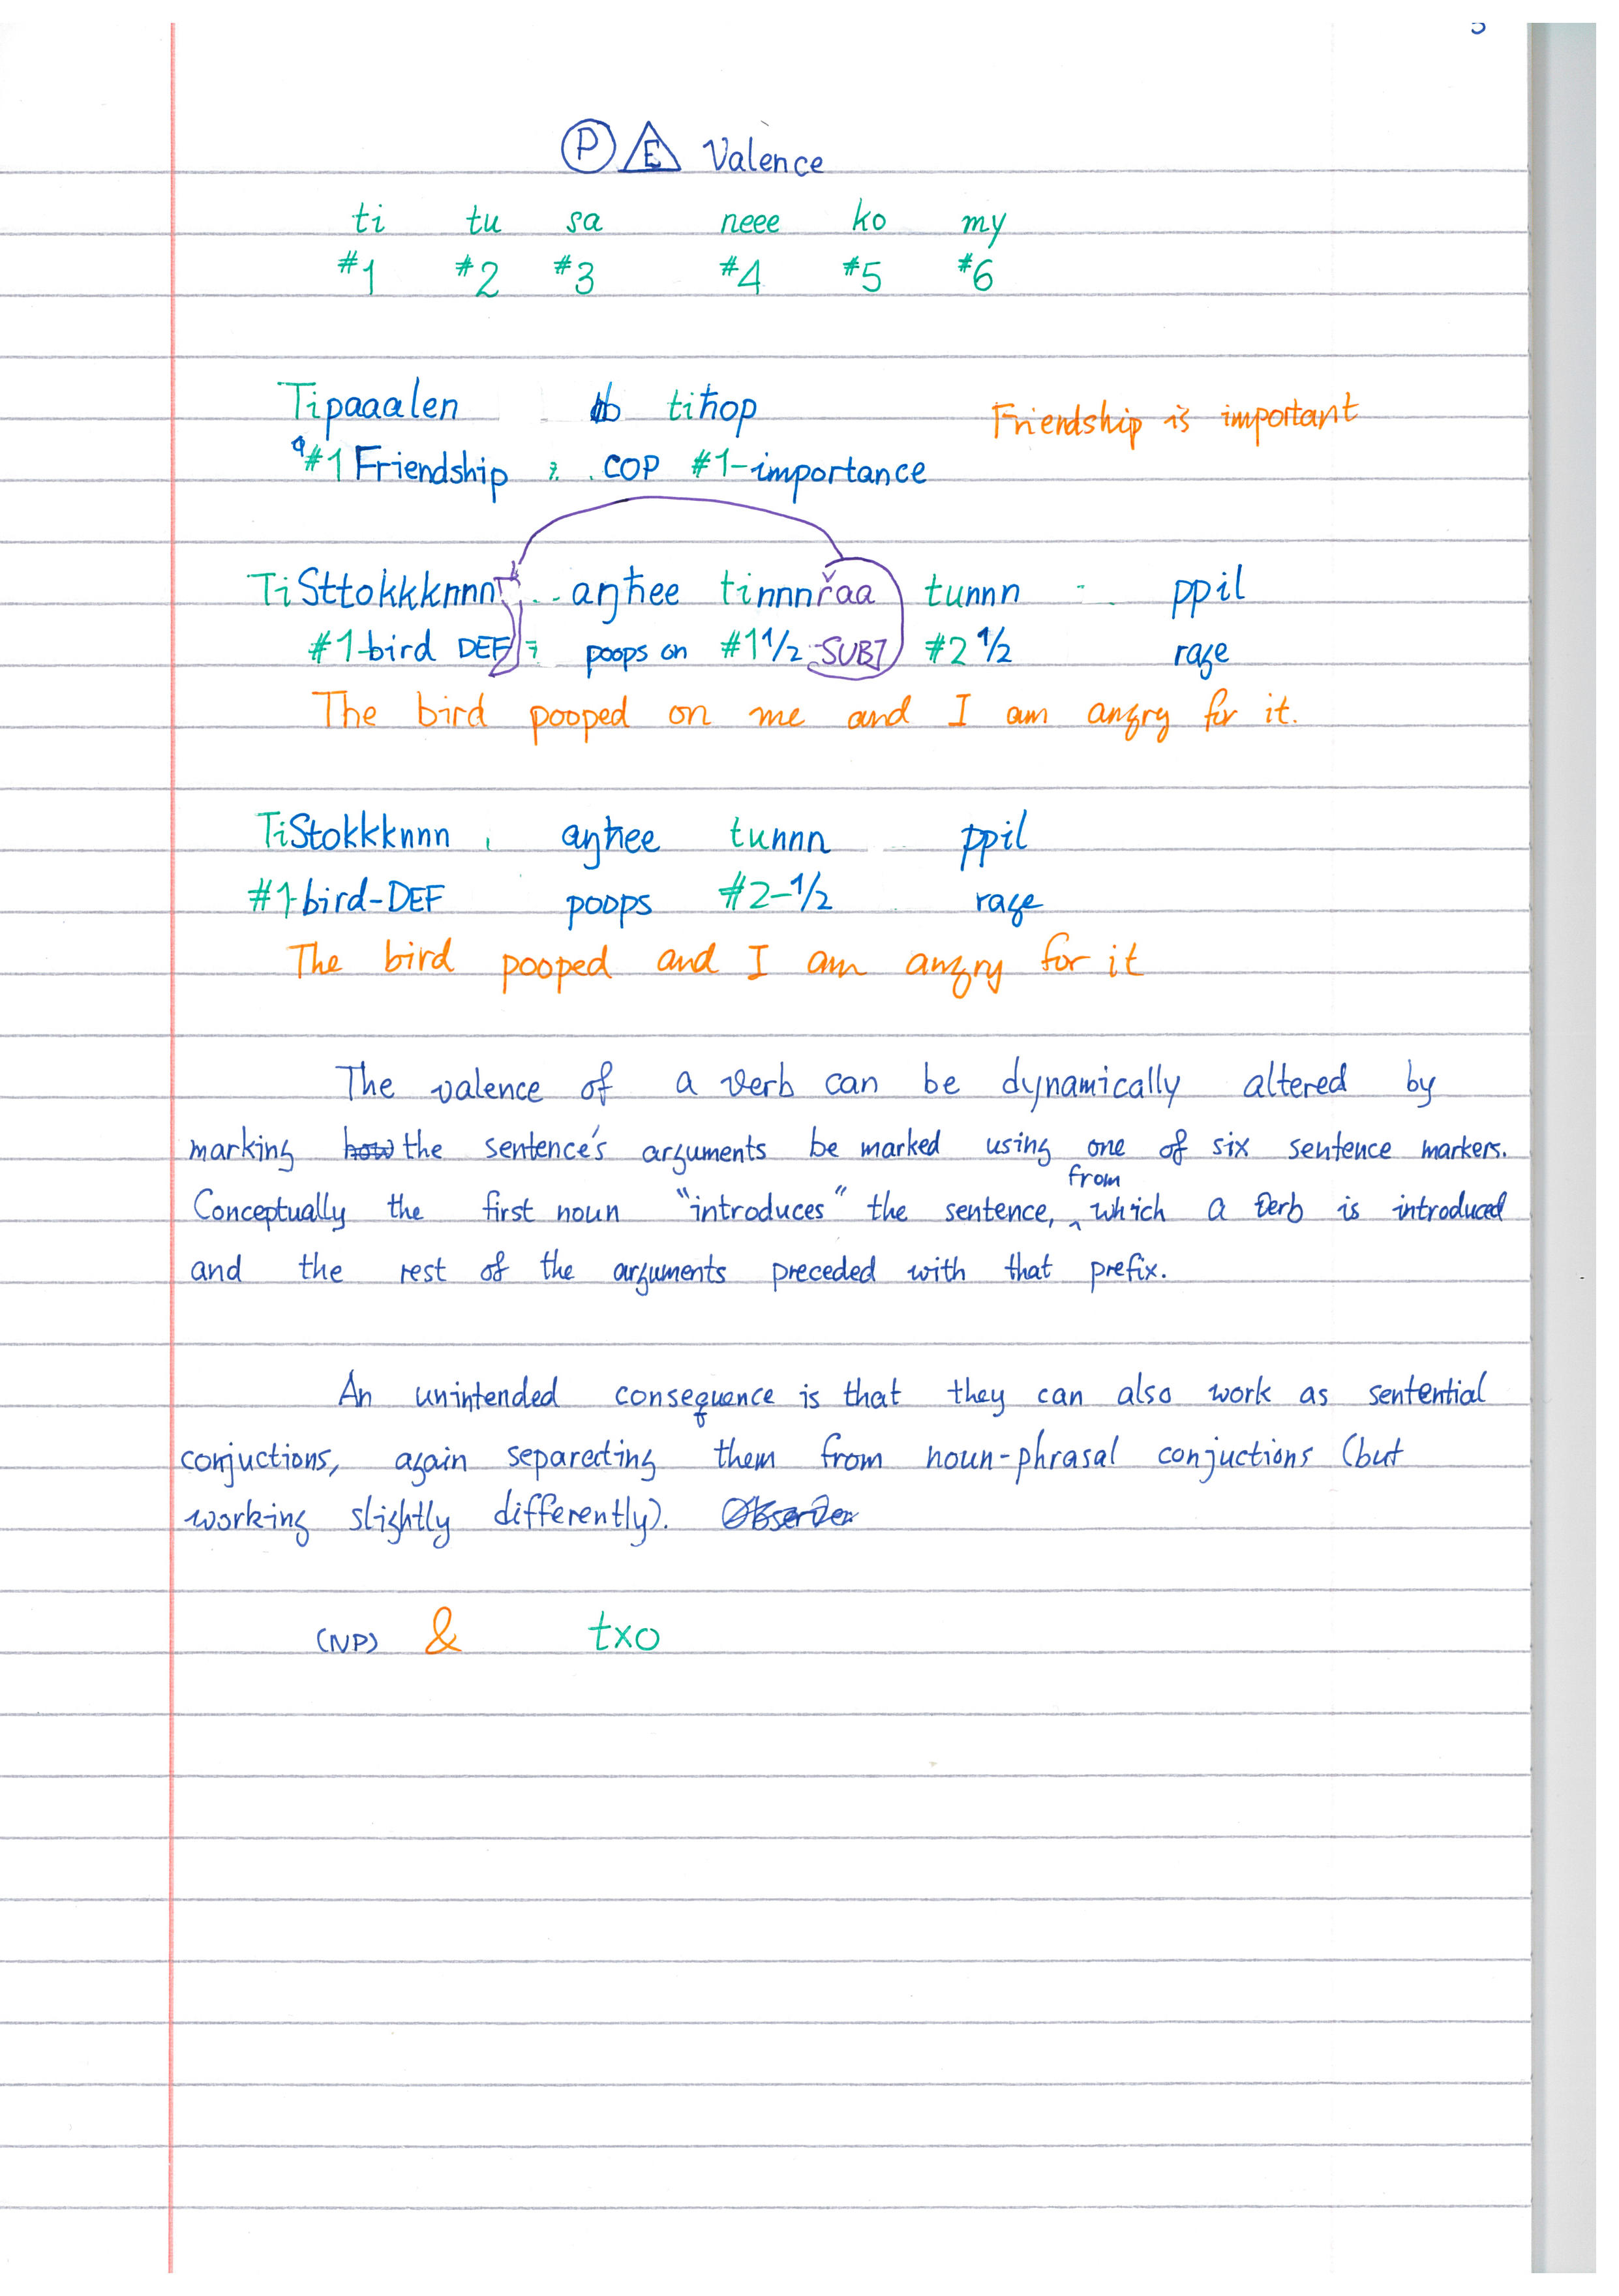 5
P E Valence
ti tu sa neee ko my
#1 #2 #3 #4 #5 #6
Tipaaalen tiħop Friendship is important
#1 Friendship COP #1-importance
TiSttokkknnn aŋħee tinnnřaa tunnn ppil
#1-bird DEF poops on #1 1/2 SUBJ #2 1/2 rage
The bird pooped on me and I am angry for it.
TiStokkknnn aŋħee tunnn ppil
#1-bird-DEF poops #2-1/2 rage
The bird pooped and I am angry for it
The valence of a verb can be dynamically altered by
marking how the sentence's arguments be marked using one of six sentence markers.
from
Conceptually the first noun "introduces" the sentence, ‸ which a verb is introduced
and the rest of the arguments preceded with that prefix.
An unintended consequence is that they can also work as sentential
conjuctions, again separating them from noun-phrasal conjuctions (but
working slightly differently).
(NP) & txo